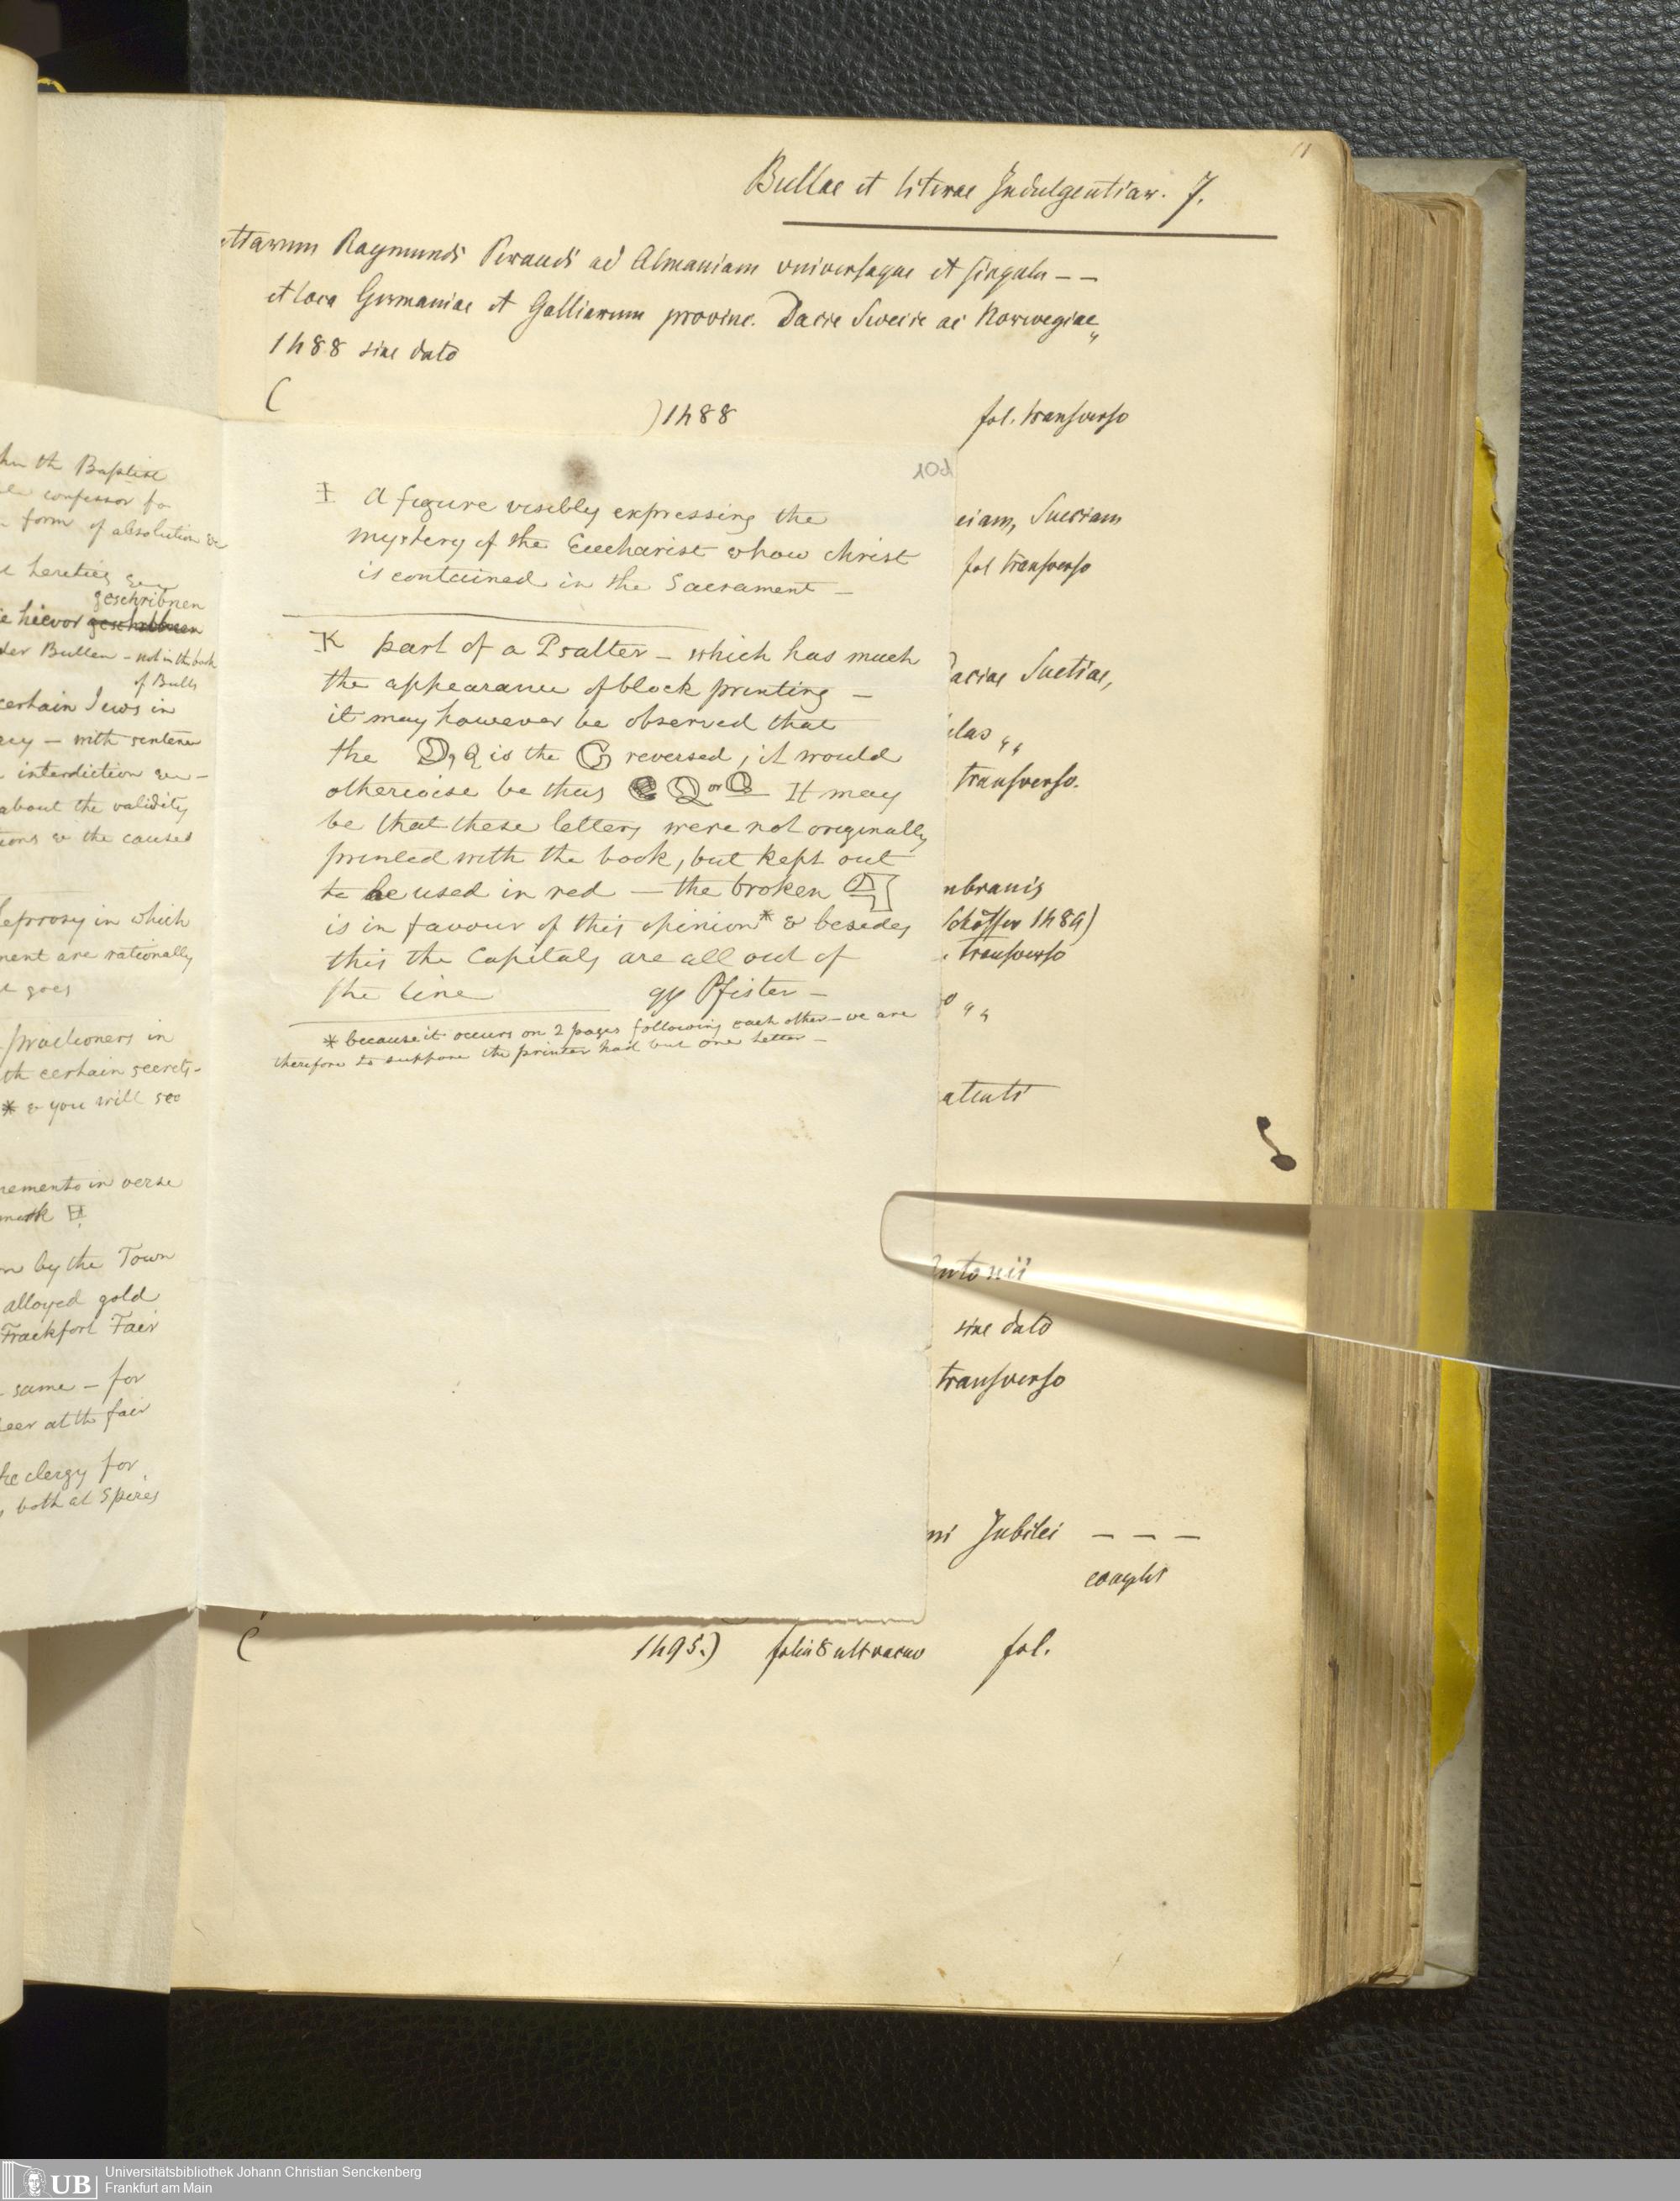 11
Bullae et literae Indulgentiar. 7.
Raymundi Peraudi ad Almaniam universaque et singula – –
et loca Germaniae et Galliarum provinc. Dacie Swecie ac Norwegiae
1488 sine dato
(
) 1488 fol. transverso
10d
I A figure visibly expressing the
mystery of the Eucharist & how Christ
is contained in the Sacrament –
K part of a Psalter – which has much
the appearance of block printing –
it may however be observed that
the D, Q is the G reversed; it would
otherwise be thus Q or Q It may
be that these letters were not originally
printed with the book, but kept out
to be used in red – the broken
is in favour of this opinion * & besides
this the Capitals are all out of
the line qy Pfister –
* because it occurs on 2 pages following each other – we are
therefore to suppose the printer had but one letter –
eiam, Sueciam
fol transverso
aciae Suetiae,
transverso.
mbranis
Schöffer 1489)
transverso
ntonii
sine dato
transverso
ni Jubilei – – –
(
1495.) folia 8 ult vacuo fol.
hn the Baptist
confessor fo
form of absolution &c
heretics &c
geschribnen
e hievor geschribnen
der Bullen – not in the book
of Bulls
certain Jews in
ey – with sentence
interdiction &c –
about the validity
ions & the causes
leprosy in which
ment are rationally
goes
practioners in
th certain secrets –
* & you will see
emento in verse
mark
n by the Town
alloyed gold
Frackfort Fair
same – for
eer at the fair
he clergy for
, both at Spires
UB
Universitätsbibliothek Johann Christian Senckenberg
Frankfurt am Main